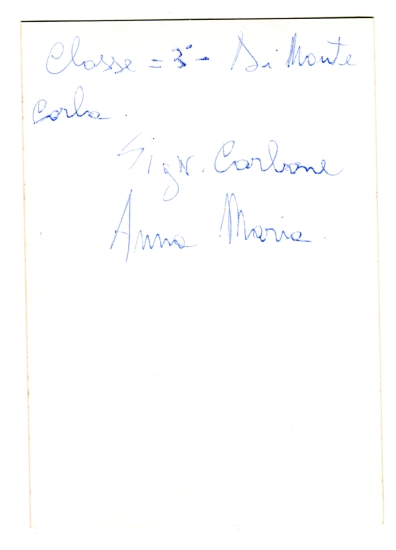 Classe = 3ª - Di Monte
Corba.
Sign. Carbone
Anna Maria.